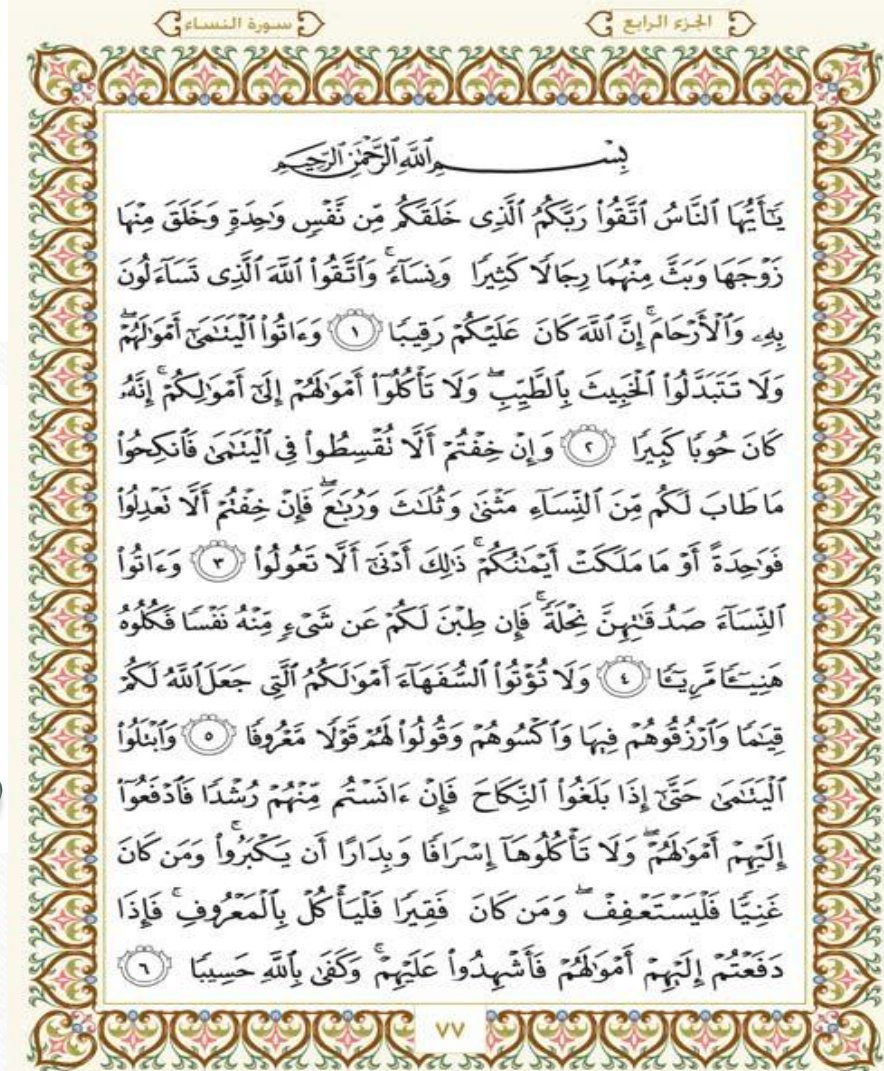 الجزء الرابع
سورة النساء
بِسْمِ ٱللَّهِ ٱلرَّحْمَٰنِ ٱلرَّحِيمِ
يَٰٓأَيُّهَا ٱلنَّاسُ ٱتَّقُوا۟ رَبَّكُمُ ٱلَّذِى خَلَقَكُم مِّن نَّفْسٍ وَٰحِدَةٍ وَخَلَقَ مِنْهَا
زَوْجَهَا وَبَثَّ مِنْهُمَا رِجَالًا كَثِيرًا وَنِسَآءً ۚ وَٱتَّقُوا۟ ٱللَّهَ ٱلَّذِى تَسَآءَلُونَ
بِهِۦ وَٱلْأَرْحَامَ ۚ إِنَّ ٱللَّهَ كَانَ عَلَيْكُمْ رَقِيبًا ١ وَءَاتُوا۟ ٱلْيَتَٰمَىٰٓ أَمْوَٰلَهُمْ ۖ
وَلَا تَتَبَدَّلُوا۟ ٱلْخَبِيثَ بِٱلطَّيِّبِ ۖ وَلَا تَأْكُلُوٓا۟ أَمْوَٰلَهُمْ إِلَىٰٓ أَمْوَٰلِكُمْ ۚ إِنَّهُۥ
كَانَ حُوبًا كَبِيرًا ٢ وَإِنْ خِفْتُمْ أَلَّا تُقْسِطُوا۟ فِى ٱلْيَتَٰمَىٰ فَٱنكِحُوا۟
مَا طَابَ لَكُم مِّنَ ٱلنِّسَآءِ مَثْنَىٰ وَثُلَٰثَ وَرُبَٰعَ ۖ فَإِنْ خِفْتُمْ أَلَّا تَعْدِلُوا۟
فَوَٰحِدَةً أَوْ مَا مَلَكَتْ أَيْمَٰنُكُمْ ۚ ذَٰلِكَ أَدْنَىٰٓ أَلَّا تَعُولُوا۟ ٣ وَءَاتُوا۟
ٱلنِّسَآءَ صَدُقَٰتِهِنَّ نِحْلَةً ۚ فَإِن طِبْنَ لَكُمْ عَن شَىْءٍ مِّنْهُ نَفْسًا فَكُلُوهُ
هَنِيٓـًٔا مَّرِيٓـًٔا ٤ وَلَا تُؤْتُوا۟ ٱلسُّفَهَآءَ أَمْوَٰلَكُمُ ٱلَّتِى جَعَلَ ٱللَّهُ لَكُمْ
قِيَٰمًا وَٱرْزُقُوهُمْ فِيهَا وَٱكْسُوهُمْ وَقُولُوا۟ لَهُمْ قَوْلًا مَّعْرُوفًا ٥ وَٱبْتَلُوا۟
ٱلْيَتَٰمَىٰ حَتَّىٰٓ إِذَا بَلَغُوا۟ ٱلنِّكَاحَ فَإِنْ ءَانَسْتُم مِّنْهُمْ رُشْدًا فَٱدْفَعُوٓا۟
إِلَيْهِمْ أَمْوَٰلَهُمْ ۖ وَلَا تَأْكُلُوهَآ إِسْرَافًا وَبِدَارًا أَن يَكْبَرُوا۟ ۚ وَمَن كَانَ
غَنِيًّا فَلْيَسْتَعْفِفْ ۖ وَمَن كَانَ فَقِيرًا فَلْيَأْكُلْ بِٱلْمَعْرُوفِ ۚ فَإِذَا
دَفَعْتُمْ إِلَيْهِمْ أَمْوَٰلَهُمْ فَأَشْهِدُوا۟ عَلَيْهِمْ ۚ وَكَفَىٰ بِٱللَّهِ حَسِيبًا ٦
٧٧